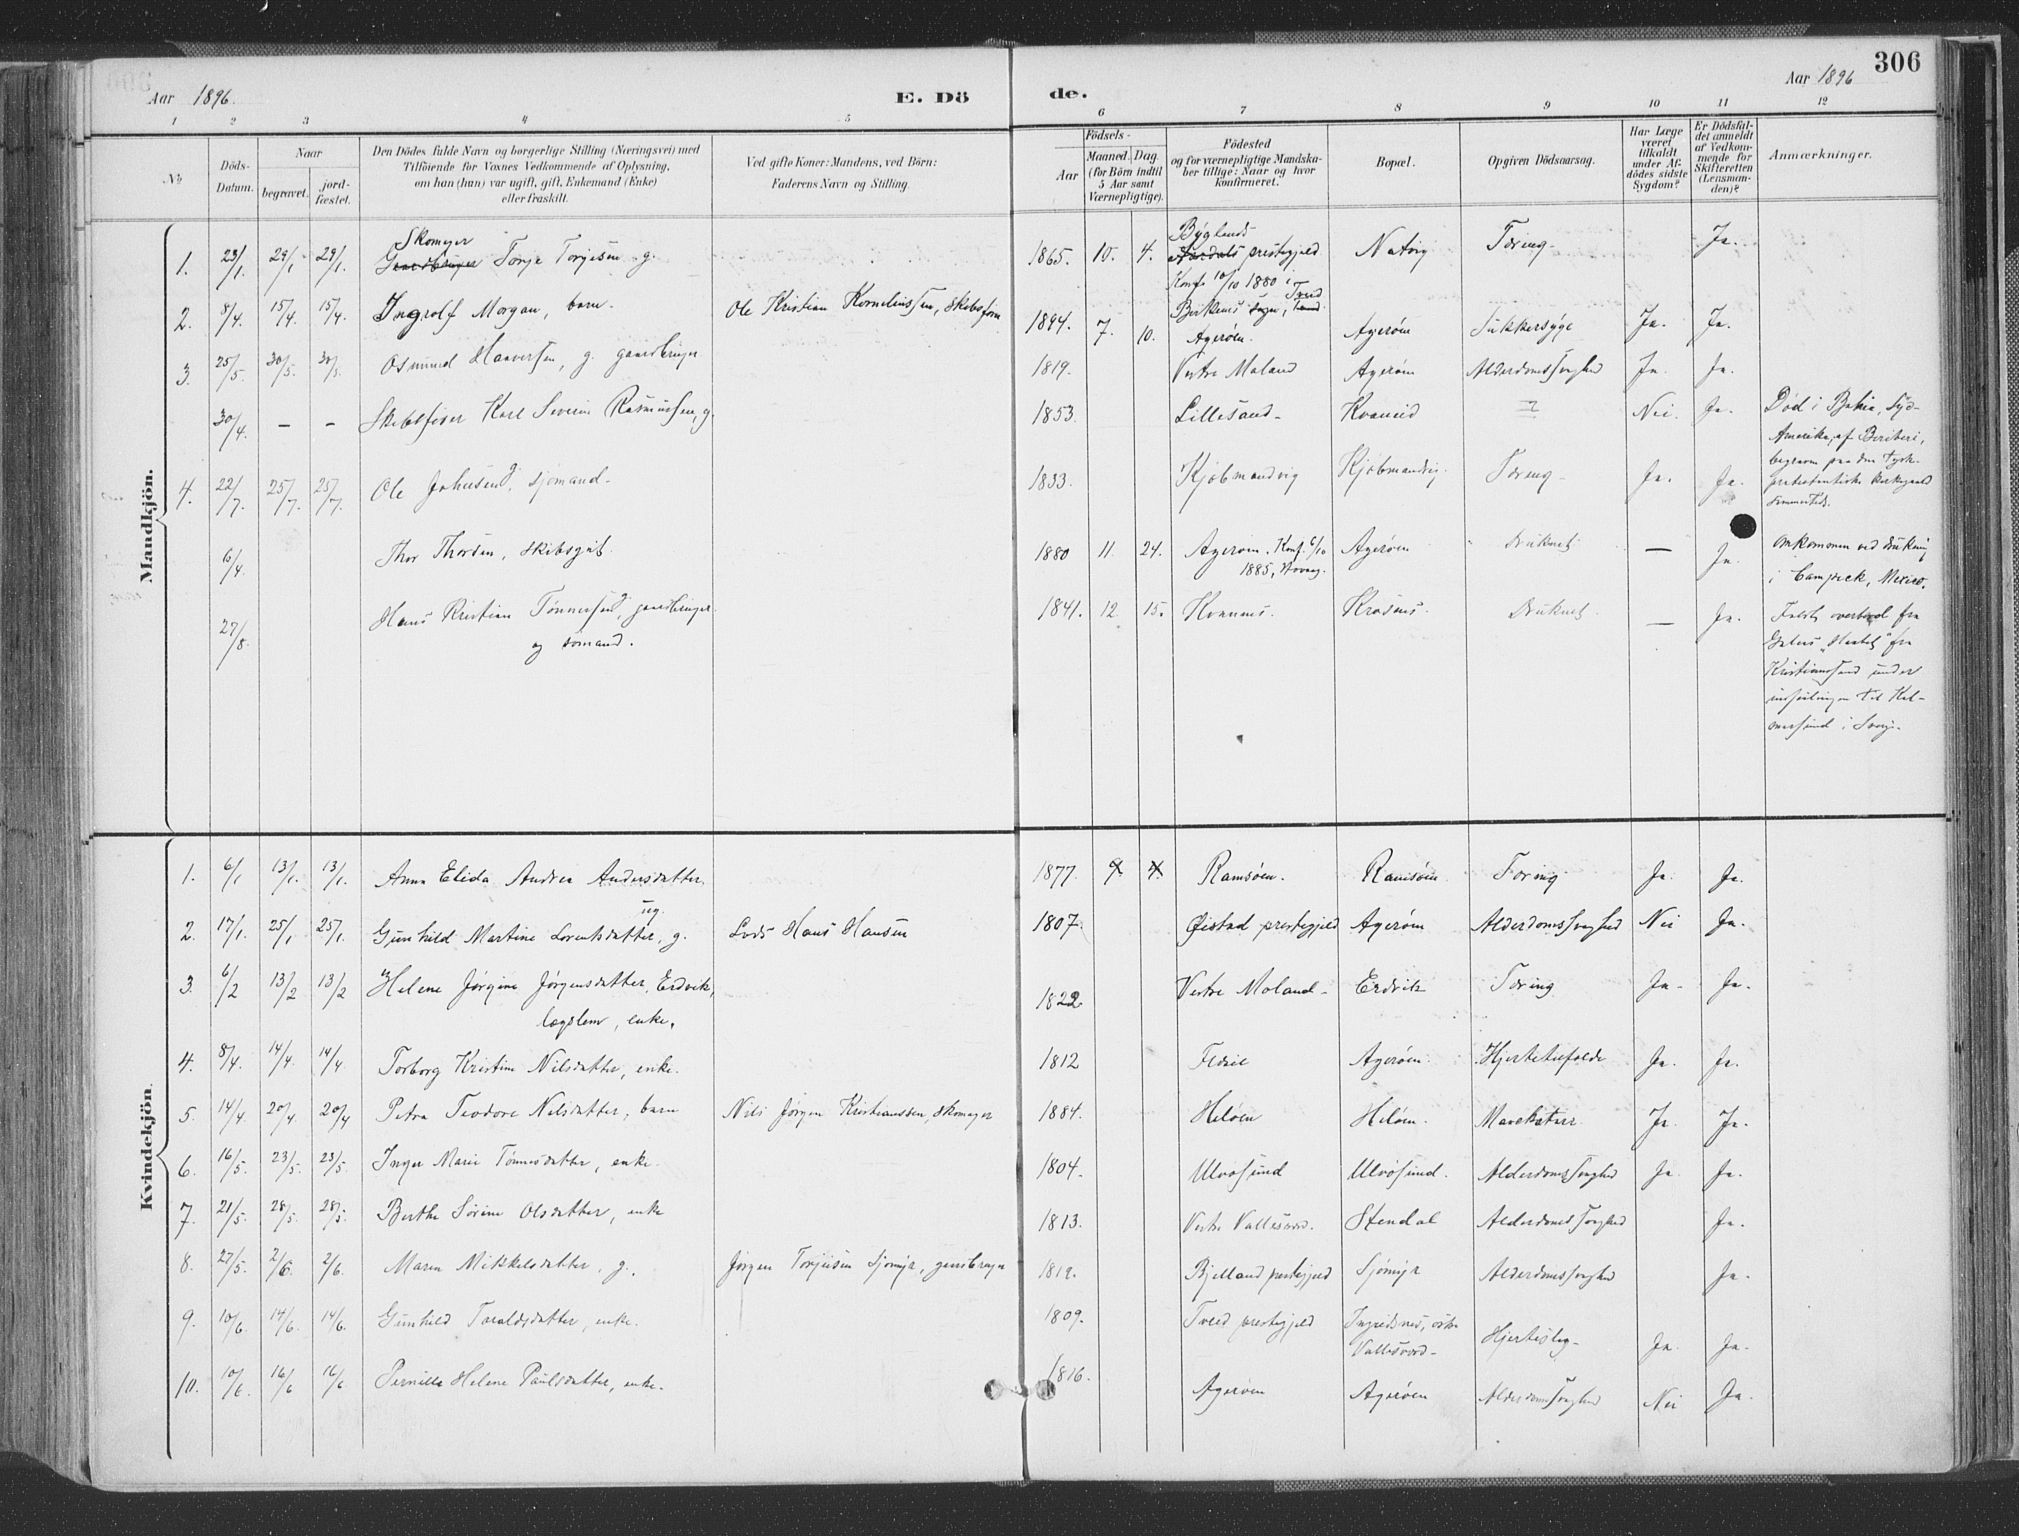 306
Aar 1896. E. Dö
de. Aar 1896
1 2 3 4 5
6 7 8 9 10 11 12
No.
Döds-Datum.
Naar
begravet.
jord-fæstet.
Den Dödes fulde Navn og borgerlige Stilling (Næringsvei) med
Tilföiende for Voxnes Vedkommende af Oplysning,
om han (hun) var ugift, gift, Enkemand (Enke)
eller fraskilt.
Ved gifte Koner: Mandens, ved Börn:
Faderens Navn og Stilling.
Födsels-
Aar
Maaned. Dag.
(for Börn indtil
5 Aar samt
Værnepligtige).
Födested
og for værnepligtige Mandska-
ber tillige: Naar og hvor
konfirmeret.
Bopæl.
Opgiven Dödsaarsag.
Har Læge
været
tilkaldt
under Af-
dödes sidste
Sygdom?
Er Dödsfal-
det anmeldt
af Vedkom-
mende for
Skifteretten
(Lensman-
den)?
Anmærkninger.
Mandkjön.
1. 23/1. 29/1. 29/1. Skomager Gaardbruger Torje Torjesen g. 1865. 10. 4. Byglands prestegjeld Natvig Tæring Ja.
Konf. 10/10 1880 i
Birkenes sogn, Tveid
2. 8/4. 15/4. 15/4. Ingrolf Morgan, barn. Ole Kristian Kornelinssen, skibsførn 1894. 7. 10. Agerøen. Agerøen Sukkersyge Ja. Ja.
3. 25/5. 30/5. 30/5. Osmund Haaversen, g. gaardbruger 1819. Vestre Moland Agerøen Alderdomssvaghed Ja. Ja.
30/4. – – Skibsfører Karl Severin Rasmussen, g. 1853. Lillesand Kvaneid Nei. Ja. Død i Bahia, Syd-
Amerika, af Beriberi,
begraven paa den tysk-
protestantiske kirkegaard
sammesteds.
4. 22/7. 25/7. 25/7. Ole Johnsen, sjømand 1833. Kjøbmandvig Kjøbmandvig. Tæring Ja. Ja.
6/4. Thor Thorsen, skibsgut. 1880 11. 24. Agerøen. Konf. 6/10 Agerøen Druknet — Ja. Omkommen ved drukning
i Campeck, Mexico.
27/8. Hans Kristian Tønnesen, gaardbruger 1841. 12. 15. Druknet. — Ja. Faldt overbord fra
og sømand.
Kristianssand under
indseilingen til Kal-
marsund i Sverige.
Kvindekjön.
1. 6/1 13/1. 13/1. Anna Elida Andrea Andersdatter 1877. Ramsøen. Ramsøen Tæring Ja. Ja.
ug.
2. 17/1. 25/1 25/1. Gunhild Martine Lorentsdatter, g. Lods Hans Hansen 1807. Øistad prestegjeld Agerøen Alderdomssvaghed Nei Ja.
3. 6/2 13/2 13/2 Helene Jørgine Jørgensdatter, Eidvik, 1822 Vestre Moland Eidvik Tæring Ja. Ja.
lægslem, enke.
4. 8/4. 14/4. 14/4 Torborg Kristine Nilsdatter, enke. 1812 Agerøen. Hjertetilfælde Ja. Ja.
5. 14/4 20/4. 20/4 Petra Teodore Nilsdatter, barn Nils Jørgen Kristianssen, skomager 1884. Heløen Heløen. Mavekatarr. Ja. Ja.
6. 16/5. 23/5. 23/5. Inger Marie Tønnesdatter, enke. 1804. Ulvøsund Ulvøsund. Alderdomssvaghed Ja. Ja.
7. 21/5. 28/5. 28/5. Berthe Sørine Olsdatter, enke 1813. Vestre Vallesværd. Stendal Alderdomssvaghed Ja.
8. 27/5. 2/6. 2/6. Maren Mikkelsdatter, g. Jørgen Torjussen Sjømyr, gaardbruger 1819. Bjelland prestegjeld Sjømyr Alderdomssvaghed Ja.
9. 10/6 14/6. 14/6. Gunhild Taraldsdatter, enke. 1809. Tveid prestegjeld Ingridsnes, østre
Vallesværd Hjerteslag Ja. Ja.
10. 10/6. 16/6 16/6 Pernille Helene Paulsdatter, enke. 1816. Agerøen Agerøen Alderdomssvaghed Nei Ja.